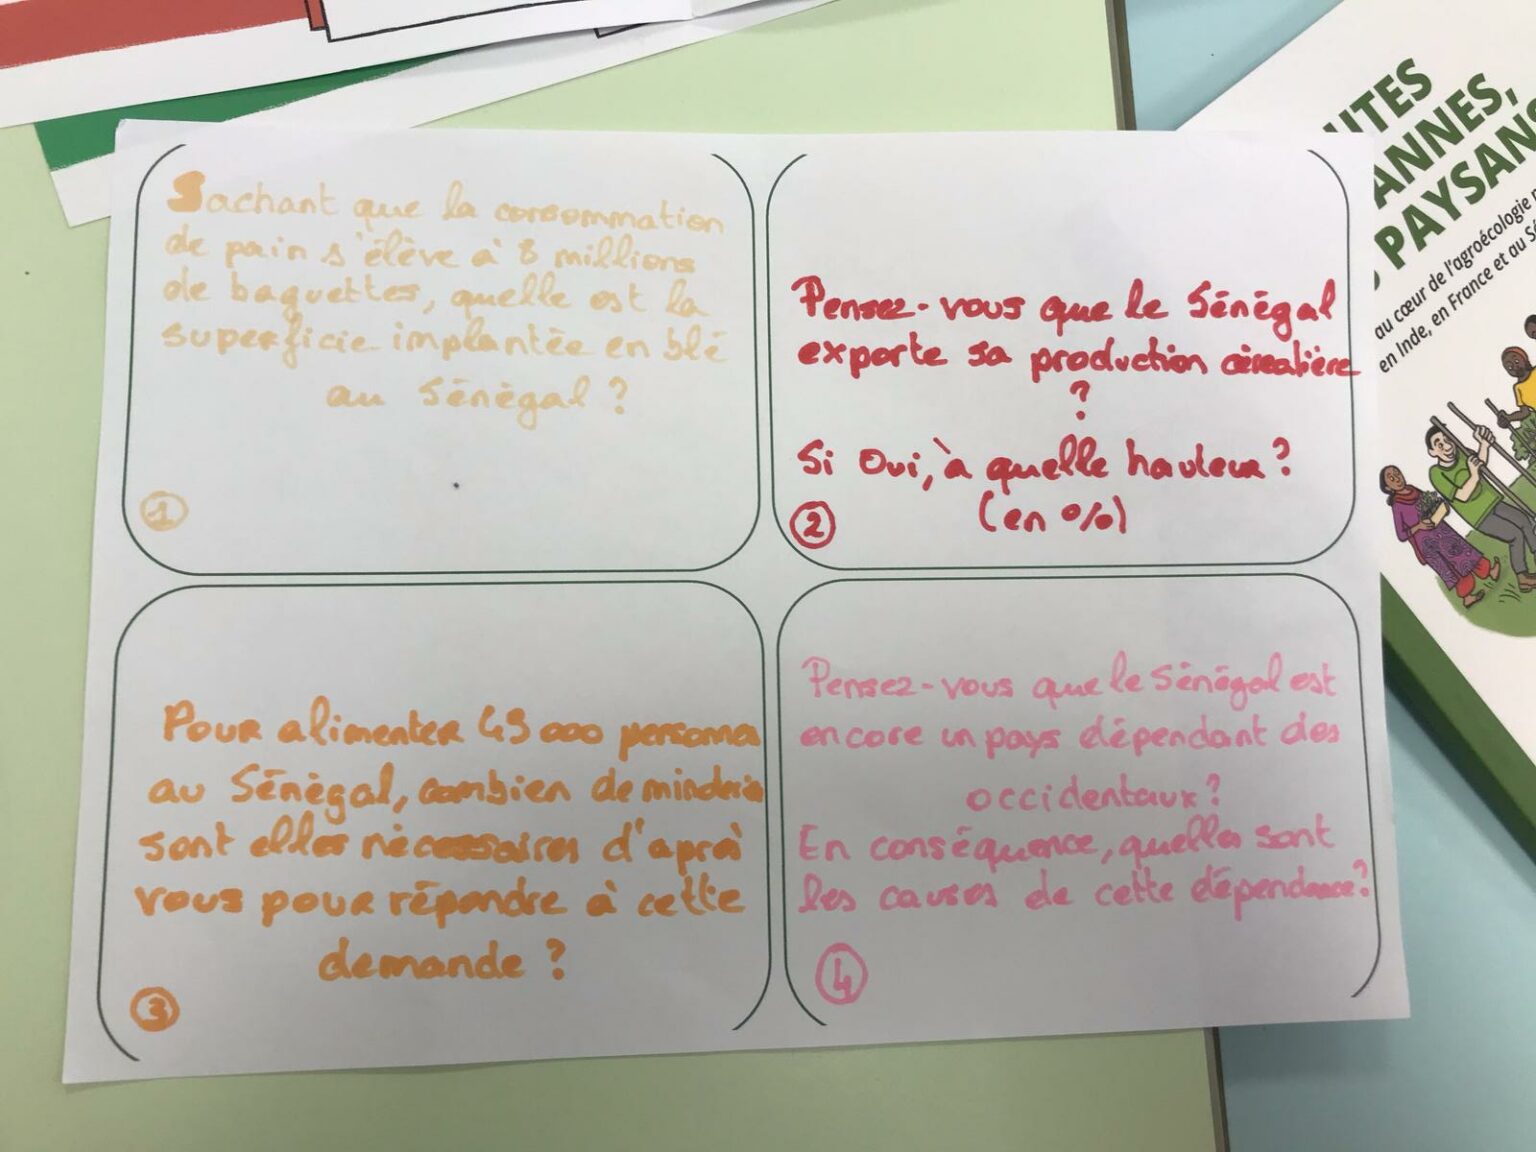 Sachant que la consommation
de pain s'élève à 8 millions
de baguettes, quelle est la
superficie implantée en blé
au Sénégal ?
1
Pensez-vous que le Sénégal
exporte sa production céréalière
?
Si Oui, à quelle hauteur ?
(en %)
2
Pour alimenter 49 000 personnes
au Sénégal, combien de minderie
sont elles nécessaires d'après
vous pour répondre à cette
demande ?
3
Pensez-vous que le Sénégal est
encore un pays dépendant des
occidentaux ?
En conséquence, quelles sont
les causes de cette dépendance ?
4
PAYSANS
au cœur de l'agroécologie
en Inde, en France et au